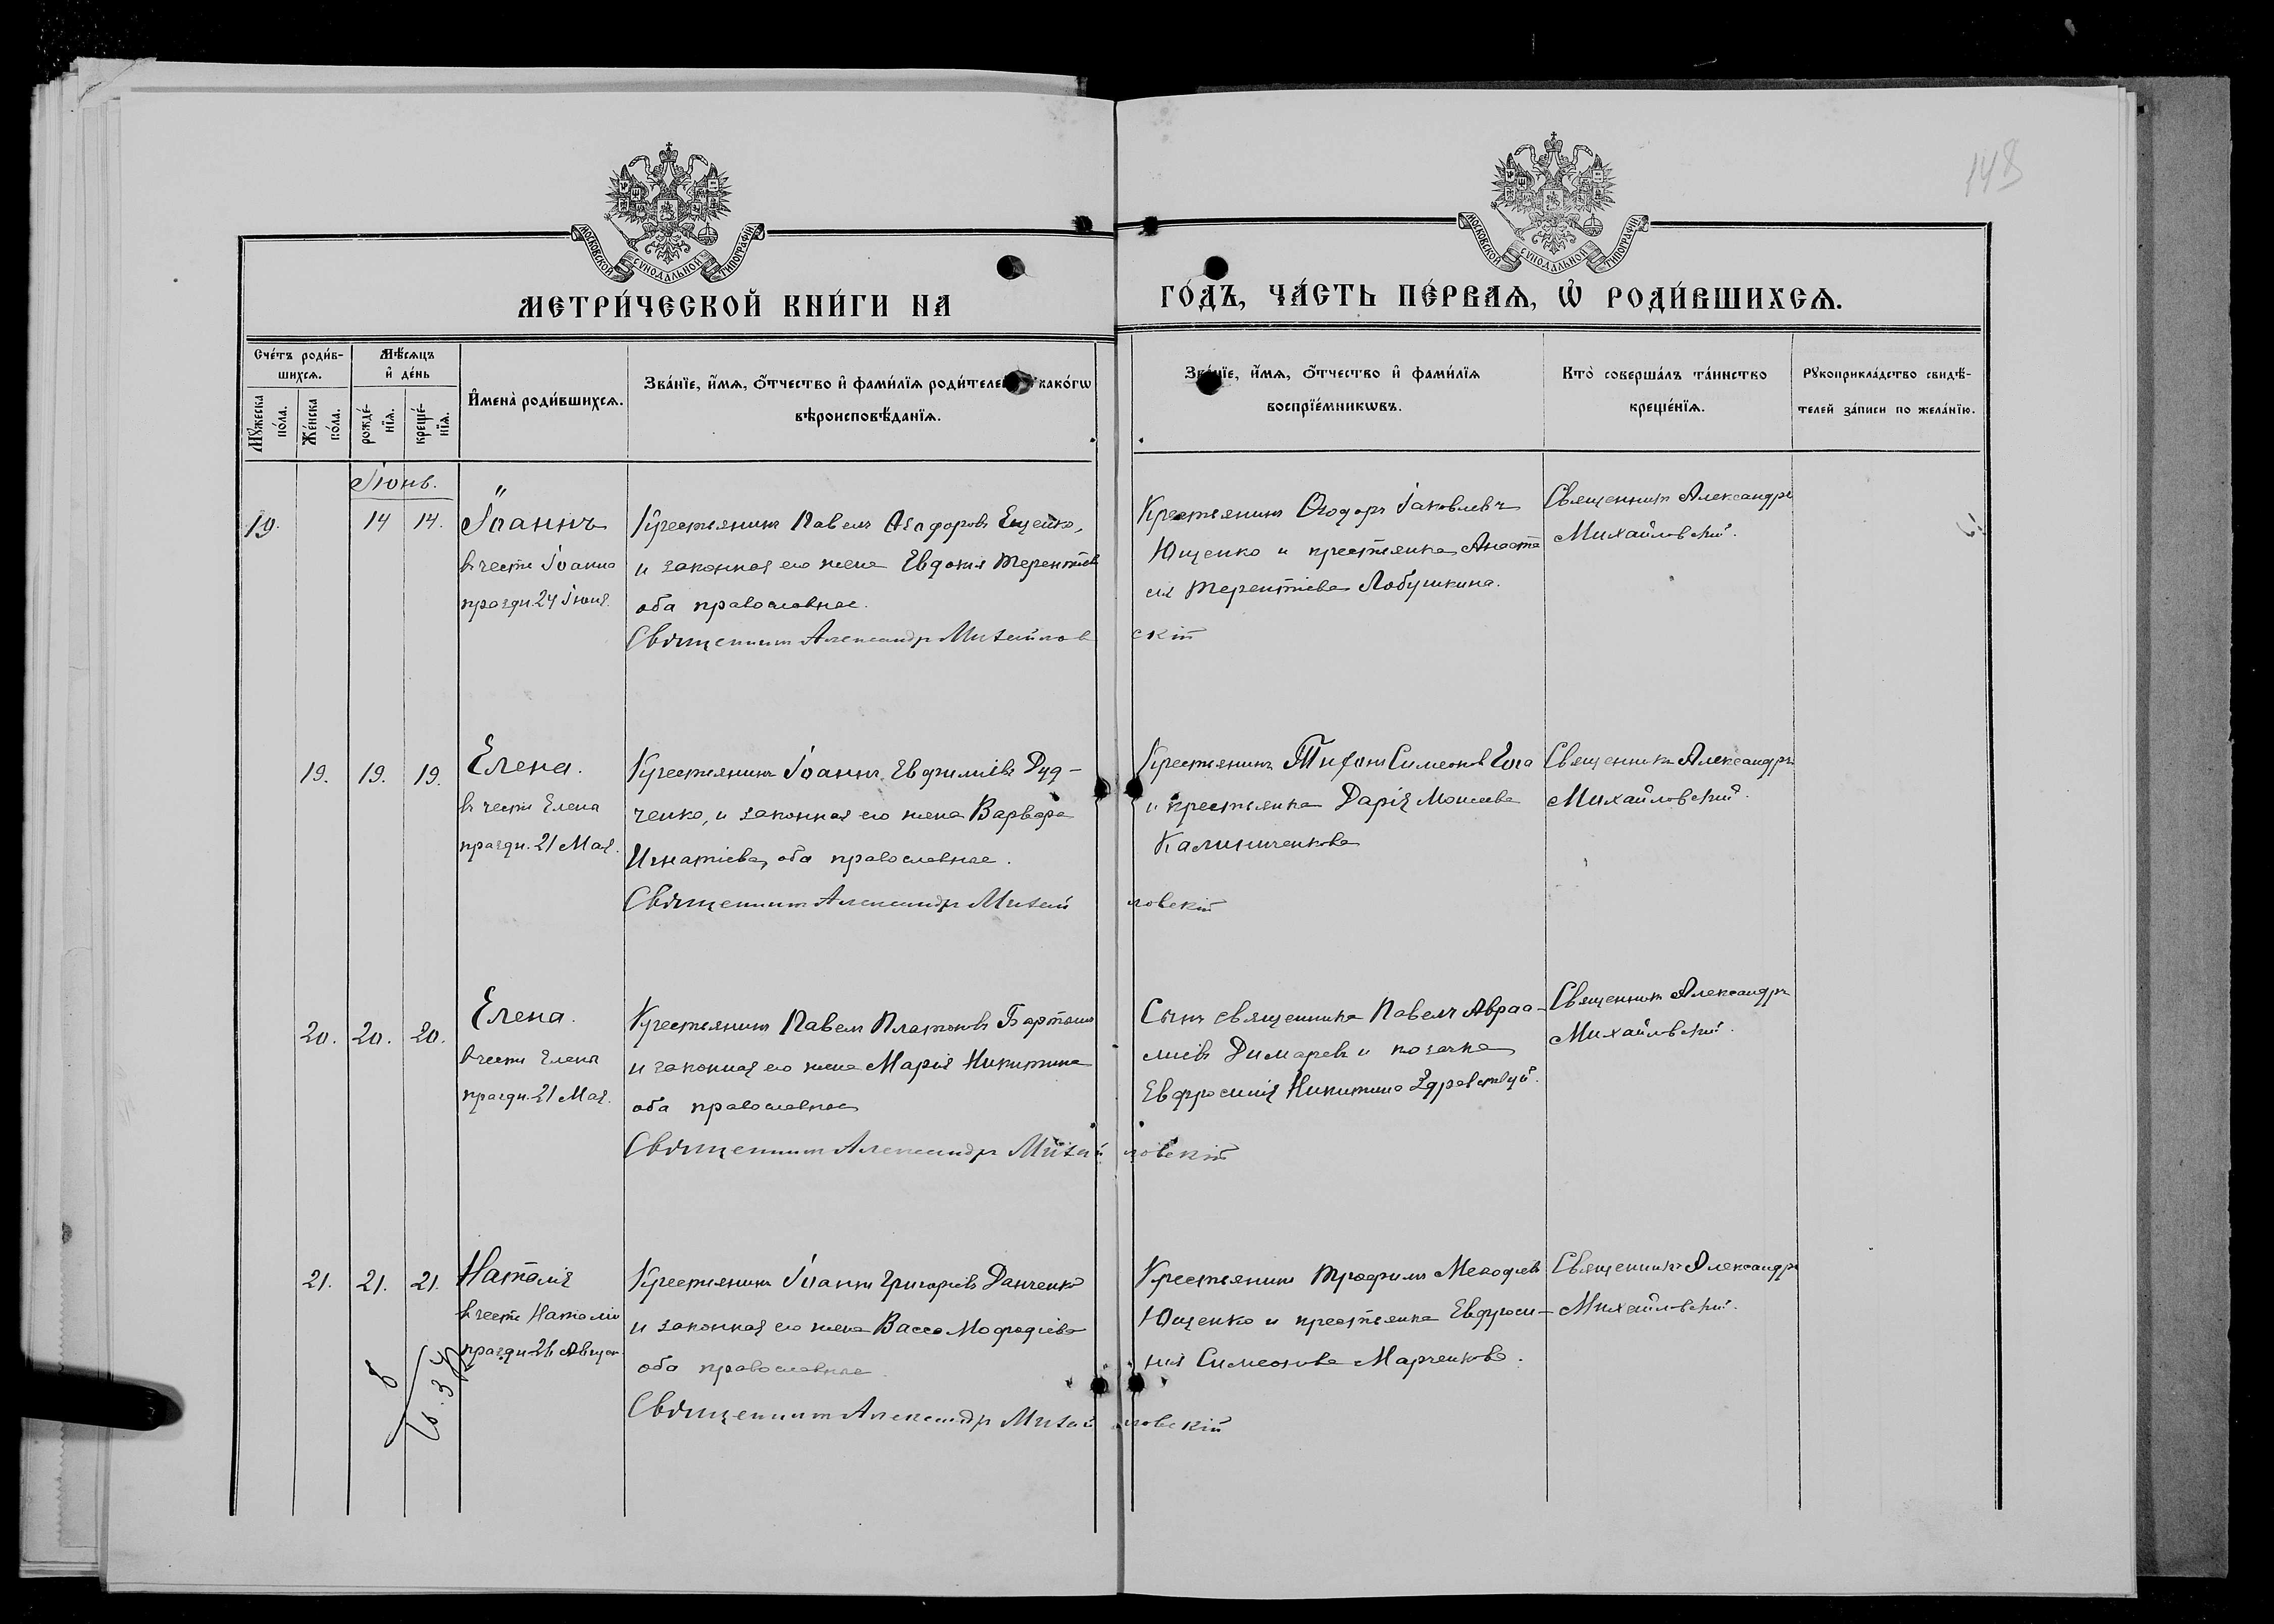 148
МОСКОВСКОЙ СУНОДАЛЬНОЙ ТИПОГРАФИИ
МОСКОВСКОЙ СУНОДАЛЬНОЙ ТИПОГРАФИИ
МЕТРИ́ЧЕСКОЙ КНИ́ГИ НА
ГО́ДЪ, ЧА́СТЬ ПЕ́РВАѦ, Ѡ҆ РОДИ́ВШИХСѦ.
Сче́тъ роди́в-
шихсѧ.
Мꙋ́жеска по́ла.
Же́нска по́ла.
Мѣ́сѧцъ
и҆ де́нь
рожде́-
нїѧ.
креще́-
нїѧ.
И҆мена̀ роди́вшихсѧ.
Зва́нїе, и҆́мѧ, ѻ҆́тчество и҆ фами́лїѧ роди́телей како́гѡ
вѣроисповѣ́данїѧ.
Зва́нїе, и҆́мѧ, ѻ҆́тчество и҆ фами́лїѧ
воспрїе́мникѡвъ.
Кто̀ соверша́лъ та́инство
креще́нїѧ.
Рꙋкоприкла́дство свидѣ́-
телей за́писи по жела́нїю.
Іюнь.
19.
14
14.
Іоаннъ
в честь Іоанна
праздн. 24 Іюня.
Крестьянинъ Павелъ Ѳеодоровъ Ещенко,
и законная его жена Евдокія Терентіев
оба православные.
Священникъ Александръ Михайлов
скій
Крестьянинъ Ѳеодоръ Іаковлевъ
Ющенко и крестьянка Анаста
сія Терентіева Лобушкина.
Священникъ Александръ
Михайловскій.
19.
19.
19.
Елена.
в честь Елена
праздн. 21 Мая.
Крестьянинъ Іоаннъ Евфиміевъ Дуд-
ченко, и законная его жена Варвара
Игнатіева, оба православные.
Священникъ Александръ Михай
ловскій
Крестьянинъ Тихонъ Симеоновъ
и крестьянка Дарія Моисеева
Калиниченкова
Священникъ Александръ
Михайловскій.
20.
20.
20.
Елена.
в честь Елена
праздн. 21 Мая.
Крестьянинъ Павелъ Платоновъ
и законная его жена Марія Никитина
оба православные
Священникъ Александръ Михай
ловскій
Сынъ священника Павелъ Авраа-
міевъ Димаревъ и козачка
Евфросинія Никитина Здравствуй.
Священникъ Александръ
Михайловскій.
21.
21.
21.
Наталія
в честь Наталіи
праздн. 26 Август
Крестьянинъ Іоаннъ Григоріевъ Данченко
и законная его жена Васса Меѳодіева
оба православные.
Священникъ Александръ Михай
ловскій
Крестьянинъ Трофимъ Меѳодіевъ
Ющенко и крестьянка Евфроси-
нія Симеонова Марченкова.
Священникъ Александръ
Михайловскій.